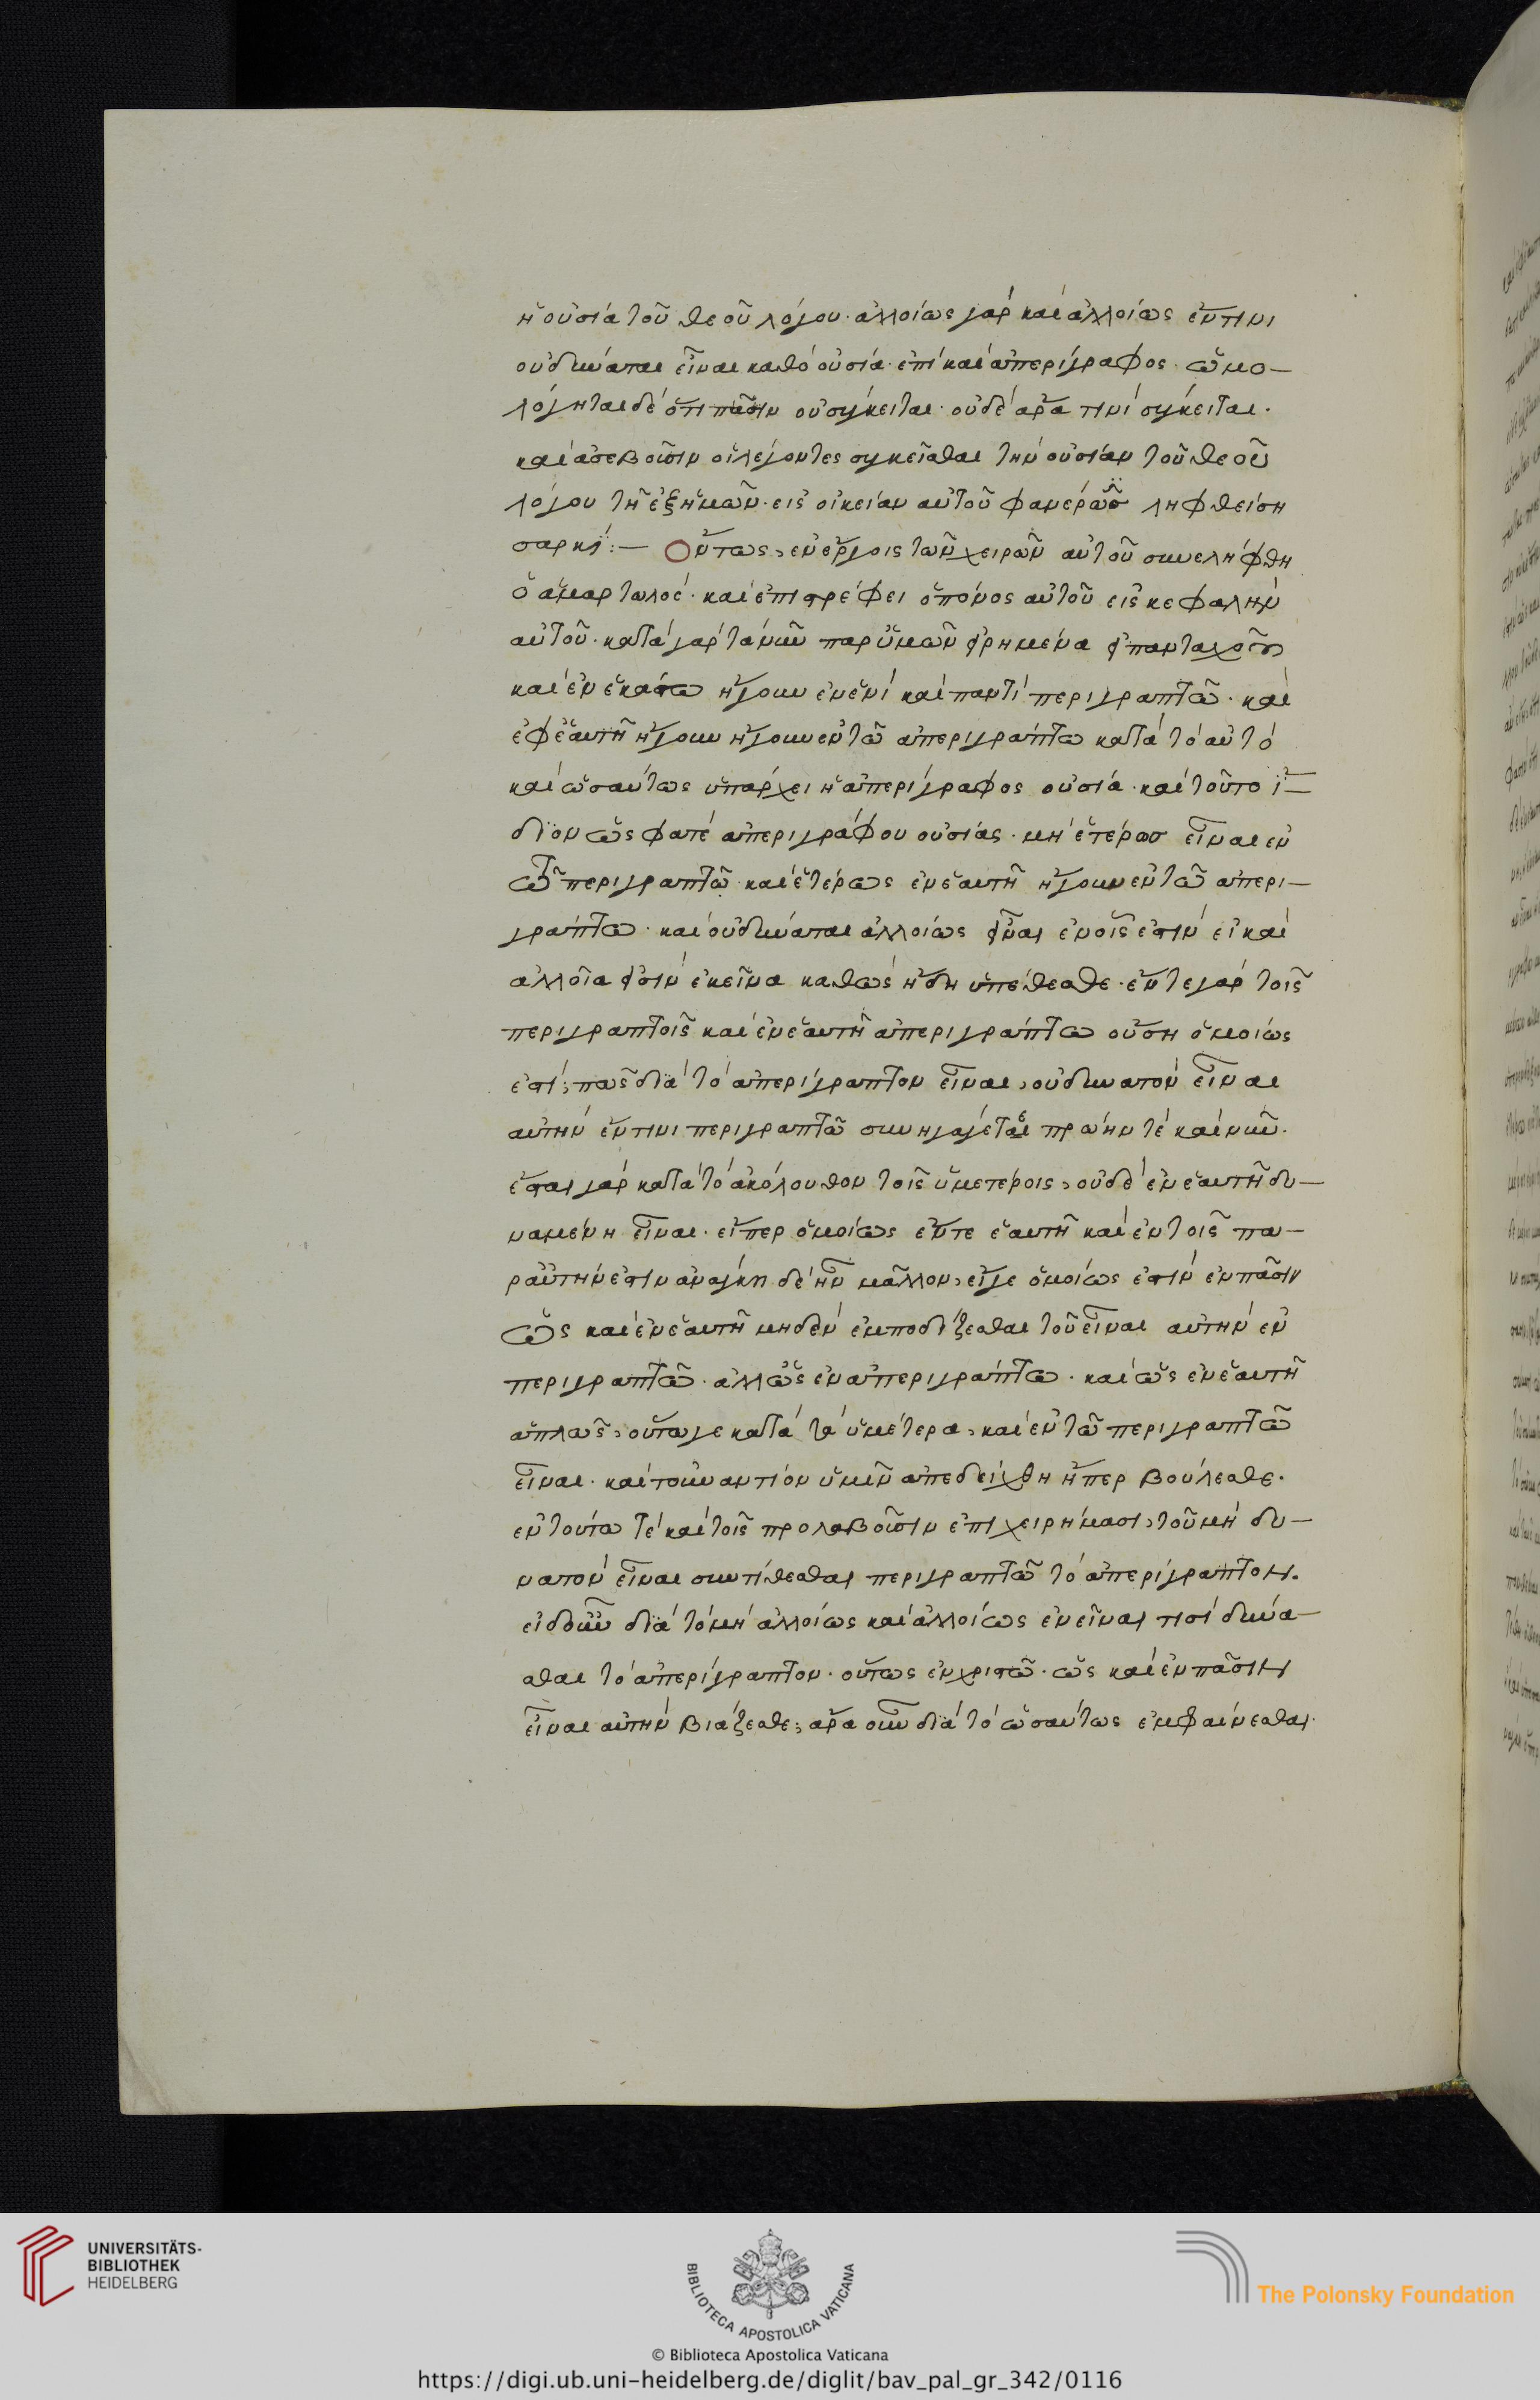 ἡ οὐσία τοῦ θεοῦ λόγου· ἀλλοίως γὰρ καὶ ἀλλοίως ἔν τινι
οὐ δύναται εἶναι καθὸ οὐσία· ἐπὶ καὶ ἀπερίγραφος· ὡμο-
λόγηται δὲ ὅτι πᾶσιν οὐ σύγκειται· οὐδὲ ἄρα τινὶ σύγκειται·
καὶ ἀσεβοῦσιν οἱ λέγοντες συγκεῖσθαι τὴν οὐσίαν τοῦ θεοῦ
λόγου τῇ ἐξ ἡμῶν· εἰς οἰκείαν αὐτοῦ φανέρωσιν ληφθείσῃ
σαρκί:- Ὄντως, ἐν ἔργοις τῶν χειρῶν αὐτοῦ συνελήφθη
ὁ ἁμαρτωλός· καὶ ἐπιστρέφει ὁ πόνος αὐτοῦ εἰς κεφαλὴν
αὐτοῦ· κατὰ γὰρ τὰ νῦν παρ ὑμῶν εἰρημένα εἰ πανταχοῦ
καὶ ἐν ἑκάστω ἤγουν ἐν ἑνὶ καὶ παντὶ περιγραπτῶ· καὶ
ἐφ ἑαυτῆ ἤγουν ἤγουν ἐν τῶ ἀπεριγράπτω κατὰ τὸ αὐτὸ
καὶ ὡσαύτως ὑπάρχει ἡ ἀπερίγραφος οὐσία· καὶ τοῦτο ἴ-
διον ὥς φατὲ ἀπεριγράφου οὐσίας· μὴ ἑτέρως εἶναι ἐν
τῶ περιγραπτῶ καὶ ἑτέρως ἐν ἑαυτῆ ἤγουν ἐν τῶ ἀπερι-
γράπτω· καὶ οὐ δύναται ἀλλοίως εἶναι ἐν οἷς ἐστὶν εἰ καὶ
ἀλλοῖα εἰσὶν ἐκεῖνα καθὼς ἤδη ὑπέθεσθε· ἔν τε γὰρ τοῖς
περιγραπτοῖς καὶ ἐν ἑαυτῆ ἀπεριγράπτω οὔση ὁμοίως
ἐστὶ; πῶς διὰ τὸ ἀπερίγραπτον εἶναι, οὐ δυνατὸν εἶναι
αὐτὴν ἔν τινι περιγραπτῶ συνηγάγετε πρώην τὲ καὶ νῦν·
ἔσται γὰρ κατὰ τὸ ἀκόλουθον τοῖς ὑμετέροις, οὐδὲ ἐν ἑαυτῆ δυ-
ναμένη εἶναι· εἴπερ ὁμοίως ἔν τε ἑαυτῆ καὶ ἐν τοῖς πα-
ρ αὐτήν ἐστιν ἀνάγκη δὲ ἦν μᾶλλον, εἴγε ὁμοίως ἐστὶν ἐν πᾶσιν
ὡς καὶ ἐν ἑαυτῆ μηδὲν ἐμποδίζεσθαι τοῦ εἶναι αὐτὴν ἐν
περιγραπτῶ· ἀλλ ὡς ἐν ἀπεριγράπτω· καὶ ὡς ἐν ἑαυτῆ
ἁπλῶς, οὕτω γε κατὰ τὰ ὑμέτερα, καὶ ἐν τῶ περιγραπτῶ
εἶναι· καὶ τοὐναντίον ὑμῖν ἀπεδείχθη ἤπερ βούλεσθε·
ἐν τούτω τὲ καὶ τοῖς προλαβοῦσιν ἐπιχειρήμασι, τοῦ μὴ δυ-
νατὸν εἶναι συντίθεσθαι περιγραπτῶ τὸ ἀπερίγραπτον.
εἰ δ οὖν διὰ τὸ μὴ ἀλλοίως καὶ ἀλλοίως ἐνεῖναι τισὶ δύνα-
σθαι τὸ ἀπερίγραπτον· οὕτως ἐν χριστῶ· ὡς καὶ ἐν πᾶσιν
εἶναι αὐτὴν βιάζεσθε; ἄρα οὖν διὰ τὸ ὡσαύτως ἐμφαίνεσθαι·
UNIVERSITÄTS-
BIBLIOTHEK
HEIDELBERG
BIBLIOTECA APOSTOLICA VATICANA
The Polonsky Foundation
© Biblioteca Apostolica Vaticana
https://digi.ub.uni-heidelberg.de/diglit/bav_pal_gr_342/0116